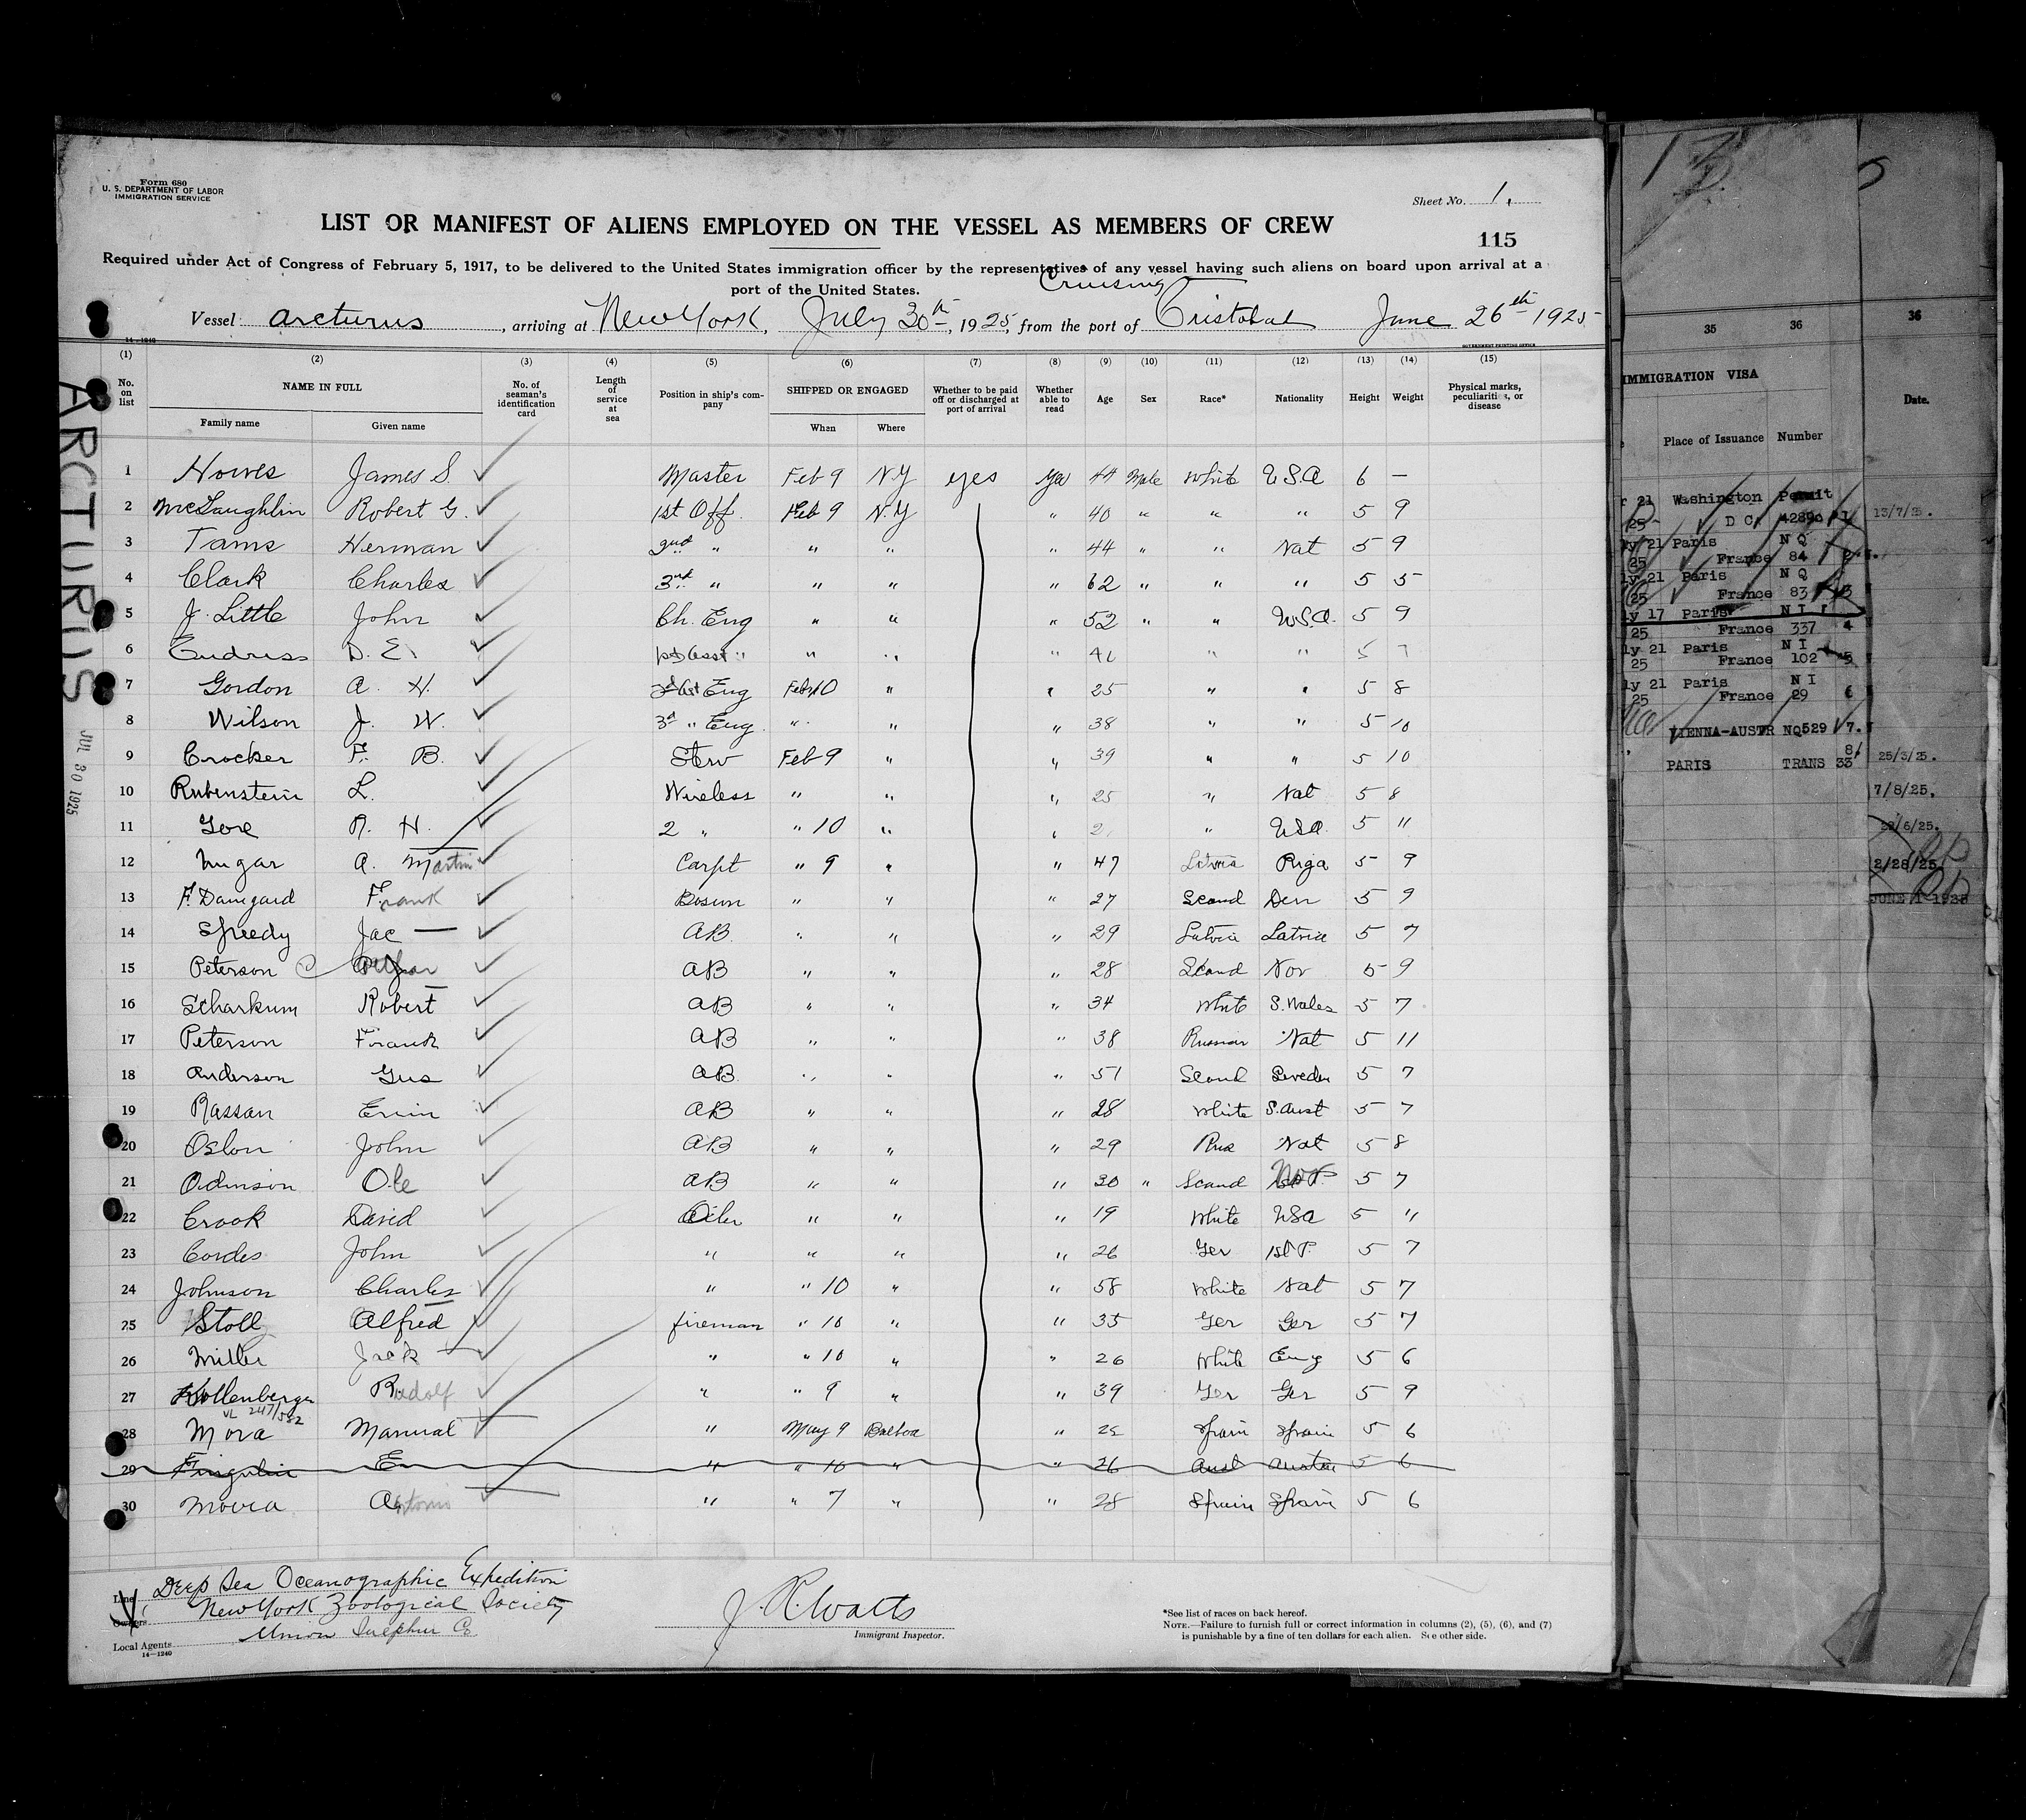 Form 680
U. S. DEPARTMENT OF LABOR
IMMIGRATION SERVICE
Sheet No. 1.
LIST OR MANIFEST OF ALIENS EMPLOYED ON THE VESSEL AS MEMBERS OF CREW
115
Required under Act of Congress of February 5, 1917, to be delivered to the United States immigration officer by the representatives of any vessel having such aliens on board upon arrival at a
port of the United States.
Cruising
Vessel Arcturus, arriving at New York, July 30th, 1925, from the port of Cristobal June 26th 1925
14-1240
GOVERNMENT PRINTING OFFICE
(1) (2) (3) (4) (5) (6) (7) (8) (9) (10) (11) (12) (13) (14) (15)
No. on list NAME IN FULL No. of seaman's identification card Length of service at sea Position in ship's company SHIPPED OR ENGAGED Whether to be paid off or discharged at port of arrival Whether able to read Age Sex Race* Nationality Height Weight Physical marks, peculiarities, or disease
Family name Given name When Where
1 Howes James S. Master Feb 9 N.Y yes Yes 44 Male White U.S.A 6 —
2 McLaughlin Robert G. 1st Off. Feb 9 N.Y " 40 " " " 5 9
3 Tams Herman 2nd " " " " 44 " " Nat 5 9
4 Clark Charles 3rd " " " " 62 " " " 5 5
5 J. Little John Ch. Eng " " " 52 " " U.S.A. 5 9
6 Endriss D. E. Asst " " " " " " 5 7
7 Gordon A. H. Eng Feb 10 " " 25 " " 5 8
8 Wilson J. W. 3rd " Eng. " " " 38 " " 5 10
9 Crocker F. B. Stew Feb 9 " " 39 " " 5 10
10 Rubenstein L. Wireless " " " 25 " Nat 5 8
11 Gore R. H. 2 " " 10 " " " U.S.A. 5 11
12 A. Martin Carpt " 9 " " 47 Riga 5 9
13 F. Damgard Frank Bosun " " " 27 Scand Den 5 9
14 Speedy Jac — AB. " " " 29 Latvia Latvia 5 7
15 Peterson AB " " " 28 Scand Nor 5 9
16 Scharkum Robert AB " " " 34 White S. Wales 5 7
17 Peterson Frank AB " " " 38 Russian Nat 5 11
18 Anderson Gus AB. " " " 51 Scand Sweden 5 7
19 Rassan Erwin AB " " " 28 White S. Aust 5 7
20 Oslon John AB " " " 29 Rus Nat 5 8
21 Odinson Ole AB " " " 30 " Scand 5 7
22 Crook David Oiler " " " 19 White USA 5 "
23 Cordes John " " " " 26 Ger 1st P. 5 7
24 Johnson Charles " " 10 " " 58 White Nat 5 7
25 Stoll Alfred fireman " 10 " " 35 Ger Ger 5 7
26 Miller Jack " " 10 " " 26 White Eng 5 6
27 Kollenberger Rudolf " " 9 " " 39 Ger Ger 5 9
VL 247/582
28 Mora Manual " May 9 Balboa " Spain Spain 5 6
29 E " " 10 " " 26 Aust Austria 5 6
30 Antonio " " 7 " " 28 Spain Spain 5 6
Line Deep Sea Oceanographic Expedition
Owners New York Zoological Society
Local Agents Union Sulphur Co
14-1240
J. R. Watts
Immigrant Inspector.
*See list of races on back hereof.
NOTE.—Failure to furnish full or correct information in columns (2), (5), (6), and (7)
is punishable by a fine of ten dollars for each alien. See other side.
ARCTURUS JUL 30 1925
13
35 36 36
IMMIGRATION VISA
Date.
Place of Issuance Number
21 Washington Permit
25 D C 13/7/25.
ly 21 Paris N Q
25 France 84
ly 21 Paris N Q
25 France 83
ly 17 Paris N I
25 France 337 4
ly 21 Paris N I
25 France 102 5
ly 21 Paris N I
25 France 29 6
VIENNA-AUSTR NQ529 7.
8/
PARIS TRANS 33 25/3/25.
7/8/25.
/6/25.
2/28/25
JUNE 1 1925